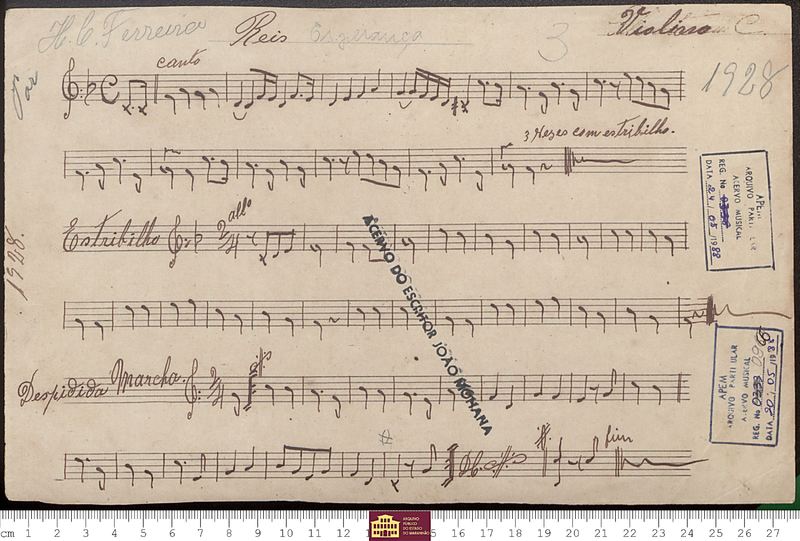 H. C. Ferreira Reis Esperança 3 2º Violino C.
Por
1928
canto
3 Vezes com estribilho.
APEM
ARQUIVO PARTICULAR
ACERVO MUSICAL
REG. No
DATA 24/05/1988
Estribilho allo
1928.
ACERVO DO ESCRITOR JOÃO MOHANA
Despidida Marcha
APEM
ARQUIVO PARTICULAR
ACERVO MUSICAL
REG. No
DATA 20/05/1988
D.C. fim
cm 1 2 3 4 5 6 7 8 9 10 11 12 13 15 16 17 18 19 20 21 22 23 24 25 26 27
ARQUIVO
PÚBLICO
DO ESTADO
DO MARANHÃO